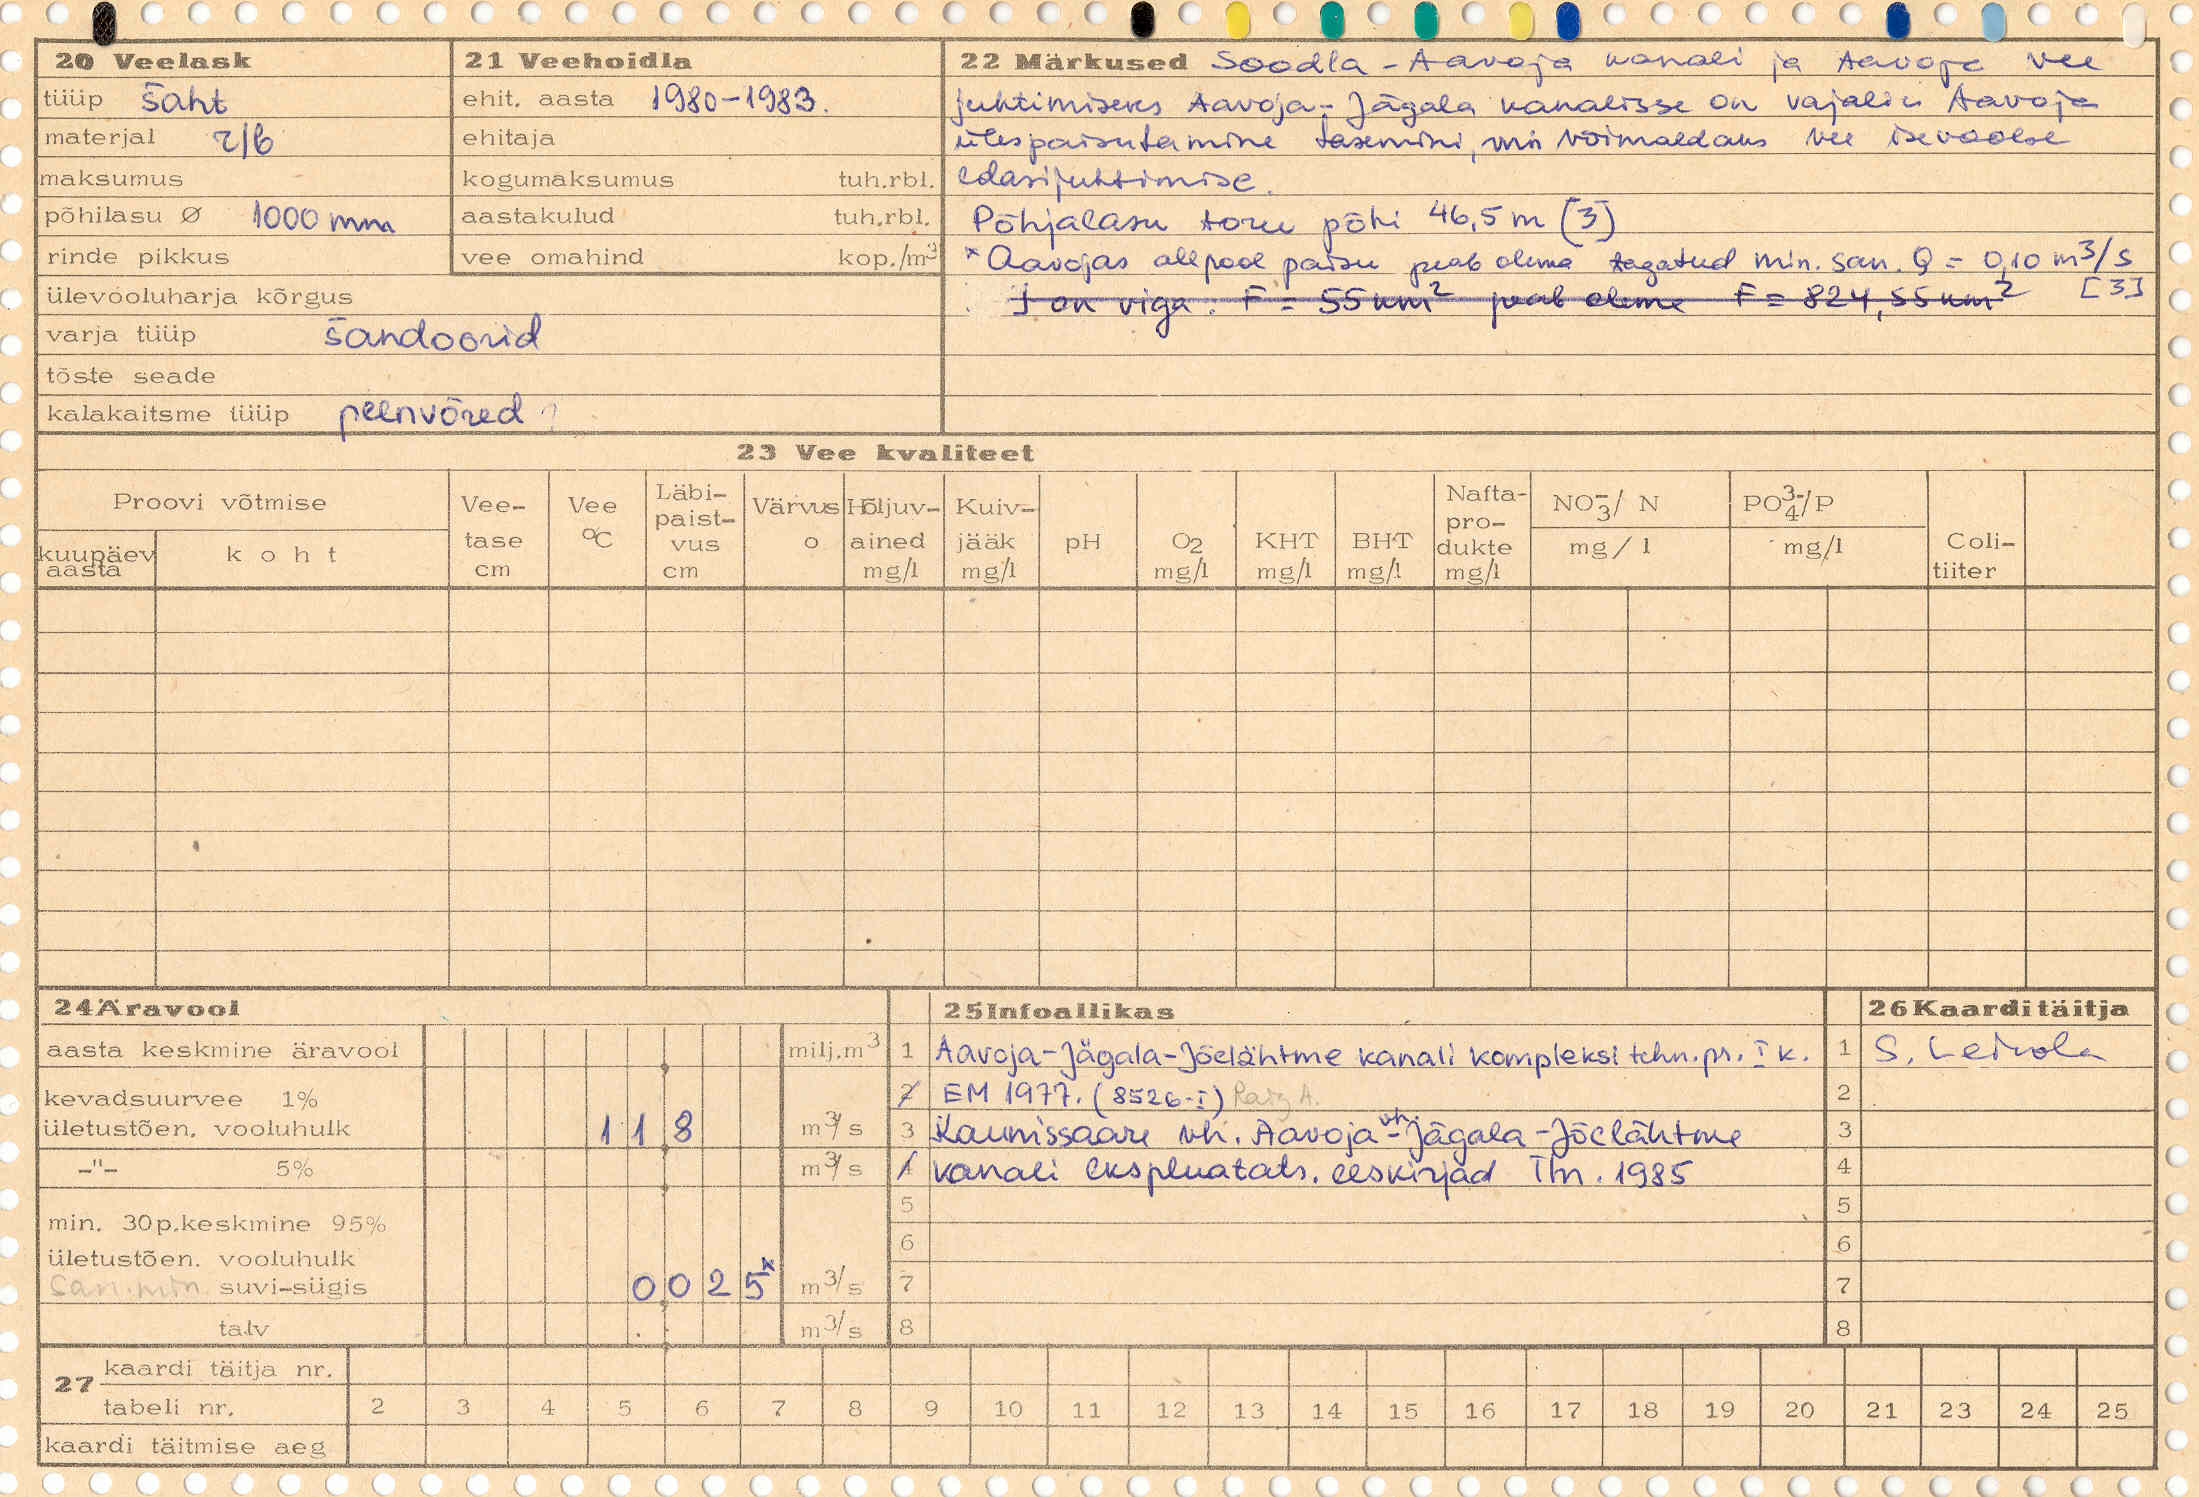 20 Veelask
tüüp šaht
materjal r/b
maksumus
põhilasu Ø 1000 mm
rinde pikkus
ülevooluharja kõrgus
varja tüüp šandoorid
tõste seade
kalakaitsme tüüp peenvõred
21 Veehoidla
ehit. aasta 1980-1983.
ehitaja
kogumaksumus tuh.rbl.
aastakulud tuh.rbl.
vee omahind kop./m³
22 Märkused Soodla - Aavoja kanali ja Aavoja vee
juhtimiseks Aavoja - Jägala kanalisse on vajalik Aavoja
ülespaisutamine tasemini, mis võimaldaks vee isevoolse
edasijuhtimise.
Põhjalasu toru põhi 46,5 m [3]
* Aavojas allpool paisu peab olema tagatud min. san. Q = 0,10 m³/s
[3]
J on viga. F = 55 km² peab olema F = 824,55 km²
23 Vee kvaliteet
Proovi võtmise
kuupäev aasta
koht
Vee-tase cm
Vee °C
Läbi-paist-vus cm
Värvus o
Hõljuv-ained mg/l
Kuiv-jääk mg/l
pH
O₂ mg/l
KHT mg/l
BHT mg/l
Nafta-pro-dukte mg/l
NO₃⁻/ N mg/l
PO₄³⁻/P mg/l
Coli-tiiter
24 Äravool
aasta keskmine äravool milj.m³
kevadsuurvee 1%
ületustõen. vooluhulk 118 m³/s
-"- 5% m³/s
min. 30p.keskmine 95%
ületustõen. vooluhulk
san. min. suvi-sügis 0025* m³/s
talv m³/s
25 Infoallikas
1 Aavoja-Jägala-Jõelähtme kanali kompleksi tehn.pr. I k.
2 EM 1977. (8526-I) Raig A.
3 Kaunissaare vh. Aavoja vh - Jägala - Jõelähtme
4 kanali ekspluatats. eeskirjad Tln. 1985
5
6
7
8
26 Kaardi täitja
1 S. Leivola
2
3
4
5
6
7
8
27 kaardi täitja nr.
tabeli nr. 2 3 4 5 6 7 8 9 10 11 12 13 14 15 16 17 18 19 20 21 23 24 25
kaardi täitmise aeg